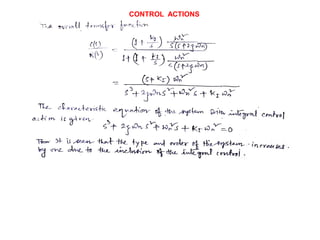 CONTROL ACTIONS
The overall transfer function
C(s)/R(s) = (1 + KI/s) ωn²/s(s+2ζωn) / 1 + (1 + KI/s) ωn²/s(s+2ζωn)
= (s + KI) ωn² / s³ + 2ζωn s² + ωn² s + KI ωn²
The characteristic equation of the system with integral control
action is given
s³ + 2ζωn s² + ωn² s + KI ωn² = 0
Thus It is seen that the type and order of the system increases
by one due to the inclusion of the integral control.